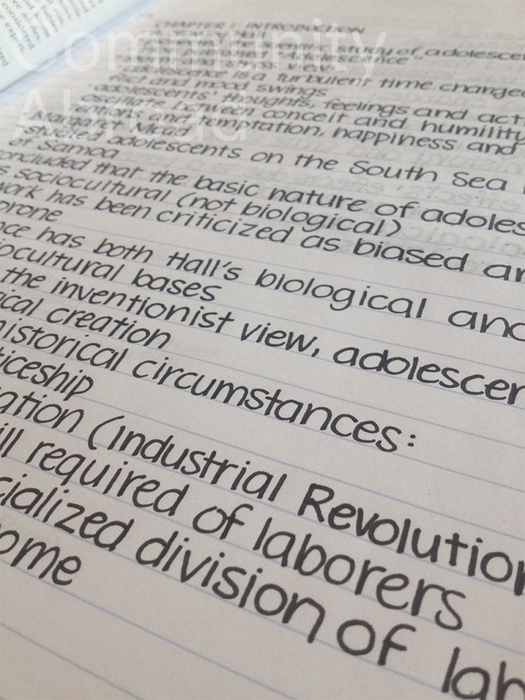 Community
Abroad
CHAPTER 1: INTRODUCTION
study of adolescen
adolescence is a turbulent time charged
mood swings
adolescents' thoughts, feelings and acti
oscillate between conceit and humility
and temptation, happiness and
Margaret Mead
studied adolescents on the South Sea I
of Samoa
concluded that the basic nature of adoles
s sociocultural (not biological)
work has been criticized as biased an
prone
nce has both Hall's biological and
ocultural bases
the inventionist view, adolescen
ical creation
historical circumstances:
ticeship
ation (Industrial Revolution
ill required of laborers
cialized division of lab
ome